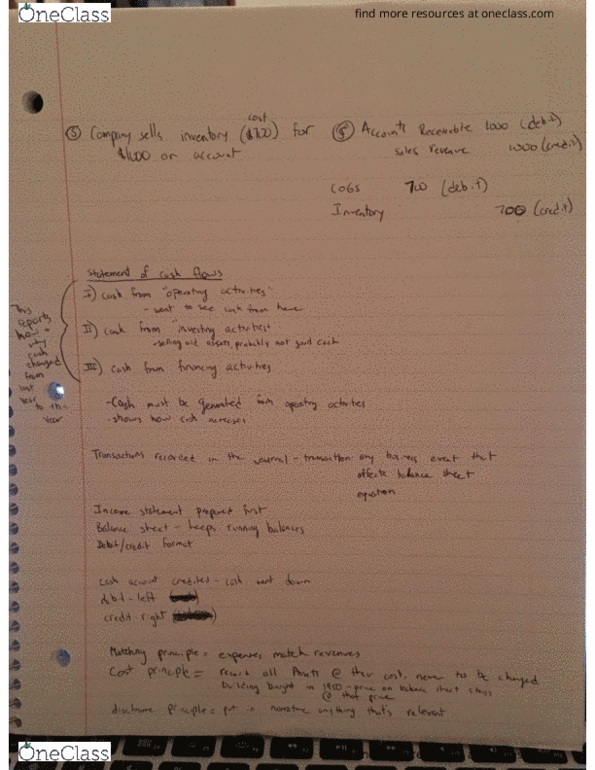 OneClass
find more resources at oneclass.com
cost
⑤ Company sells inventory ($700) for
$1000 on account
⑤ Accounts Receivable 1000 (debit)
sales revenue 1000 (credit)
COGS 700 (debit)
Inventory 700 (credit)
Statement of cash flows
I) cash from "operating activities"
- want to see cash from here
II) cash from "investing activities"
- selling old assets, probably not good cash
III) cash from financing activities
This
reports
how +
why
cash
changed
from
last
year
to this
year
- Cash must be generated from operating activities
- shows how cash increases
Transactions recorded in the journal - transaction: any business event that
affects balance sheet
equation
Income statement prepared first
Balance sheet - keeps running balances
Debit/credit format
cash account credited - cash went down
debit - left
credit - right
Matching principle = expenses match revenues
Cost principle = record all Assets @ their cost, never to be changed
building bought in 1950 - price on balance sheet stays
@ that price
disclosure principle = put in narrative anything that's relevant
OneClass